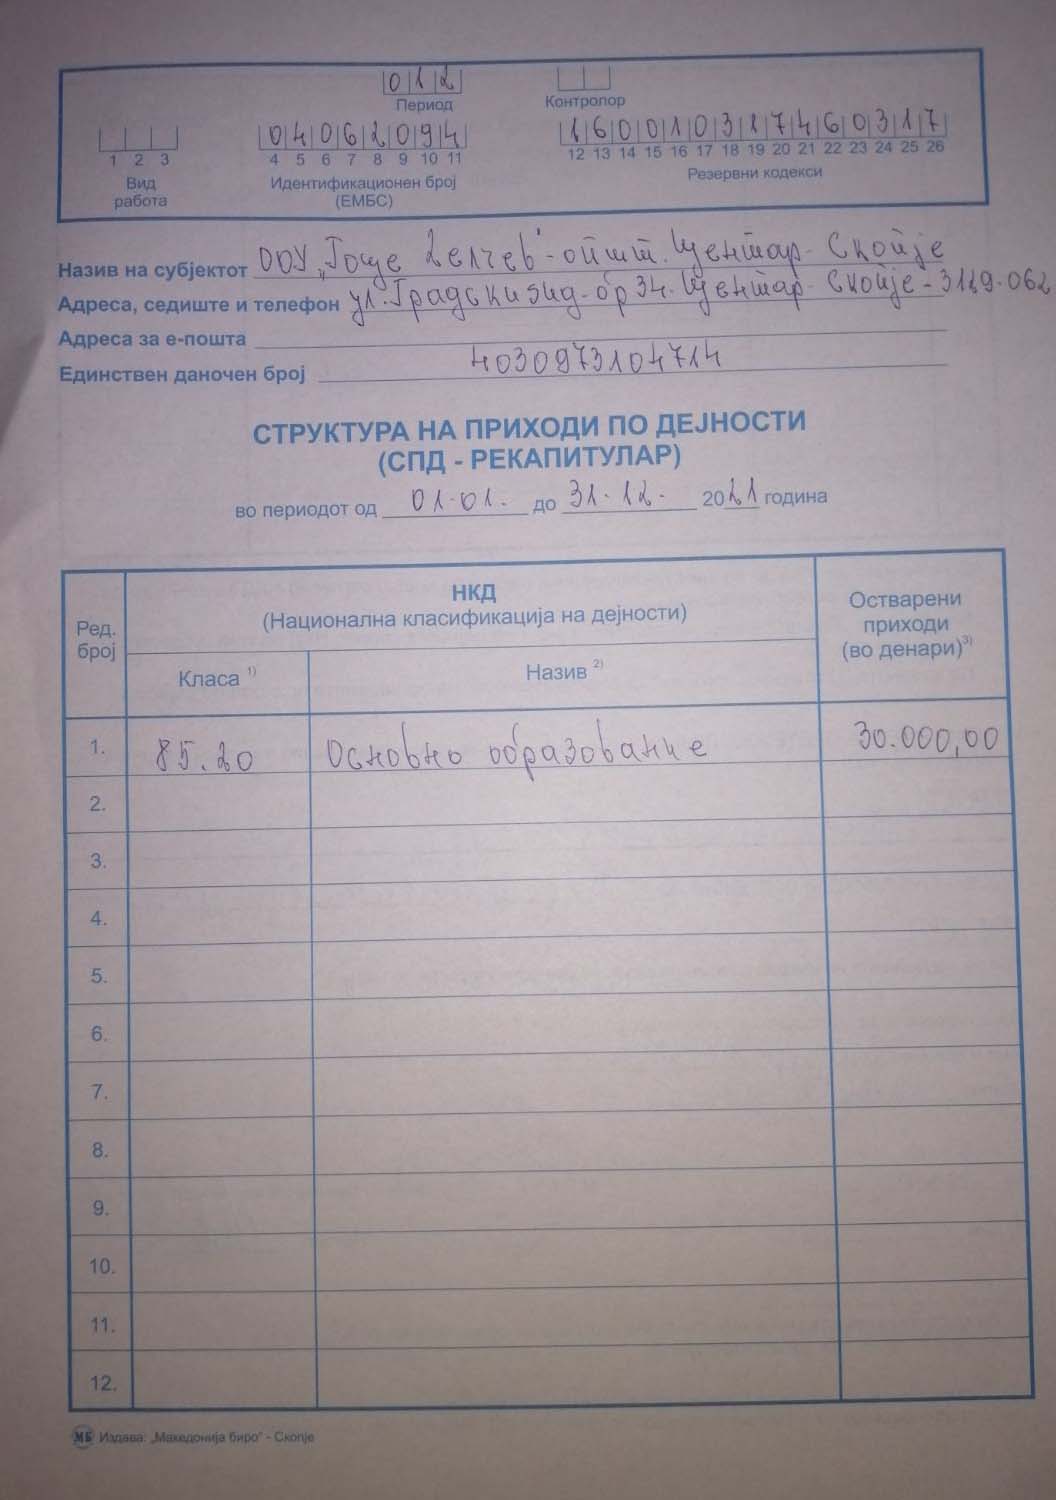 012
Период
Контролор
04062094
160010317460317
1 2 3
4 5 6 7 8 9 10 11
12 13 14 15 16 17 18 19 20 21 22 23 24 25 26
Вид работа
Идентификационен број (ЕМБС)
Резервни кодекси
Назив на субјектот ООУ „Гоце Делчев" - општ. Центар - Скопје
Адреса, седиште и телефон ул. Градски ѕид - бр 34. Центар - Скопје - 3119-062
Адреса за е-пошта
Единствен даночен број 4030973104714
СТРУКТУРА НА ПРИХОДИ ПО ДЕЈНОСТИ
(СПД - РЕКАПИТУЛАР)
во периодот од 01.01. до 31.12. 2021 година
Ред. број
НКД
(Национална класификација на дејности)
Остварени приходи (во денари)3)
Класа 1)
Назив 2)
1. 85.20 Основно образование 30.000,00
2.
3.
4.
5.
6.
7.
8.
9.
10.
11.
12.
МБ Издава: „Македонија биро" - Скопје